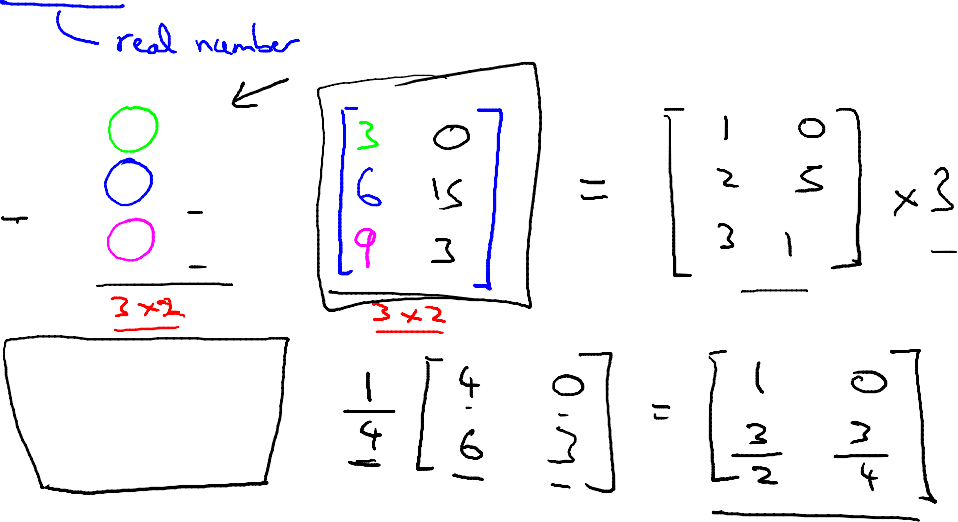 real number
[3 0; 6 15; 9 3] = [1 0; 2 5; 3 1] × 3
3×2 3×2
1/4 [4 0; 6 3] = [1 0; 3/2 3/4]